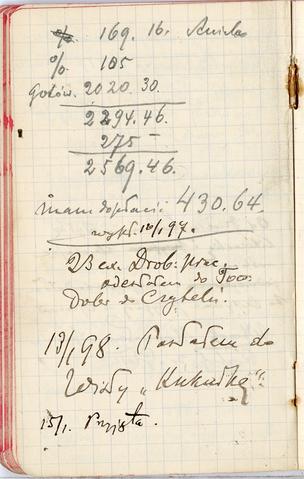 %. 169. 16.
%. 105
gotów. 2020. 30.
2294. 46.
275 –
2569. 46.
mam dopłacić 430. 64.
wypł. 10/1 97.
23 ex. Drob. prac.
odesłałem do Tow.
Dobr. do Czyteln.
13/1 98. Posłałem do
Wisły „Kukułkę".
15/1. Przyjęta.